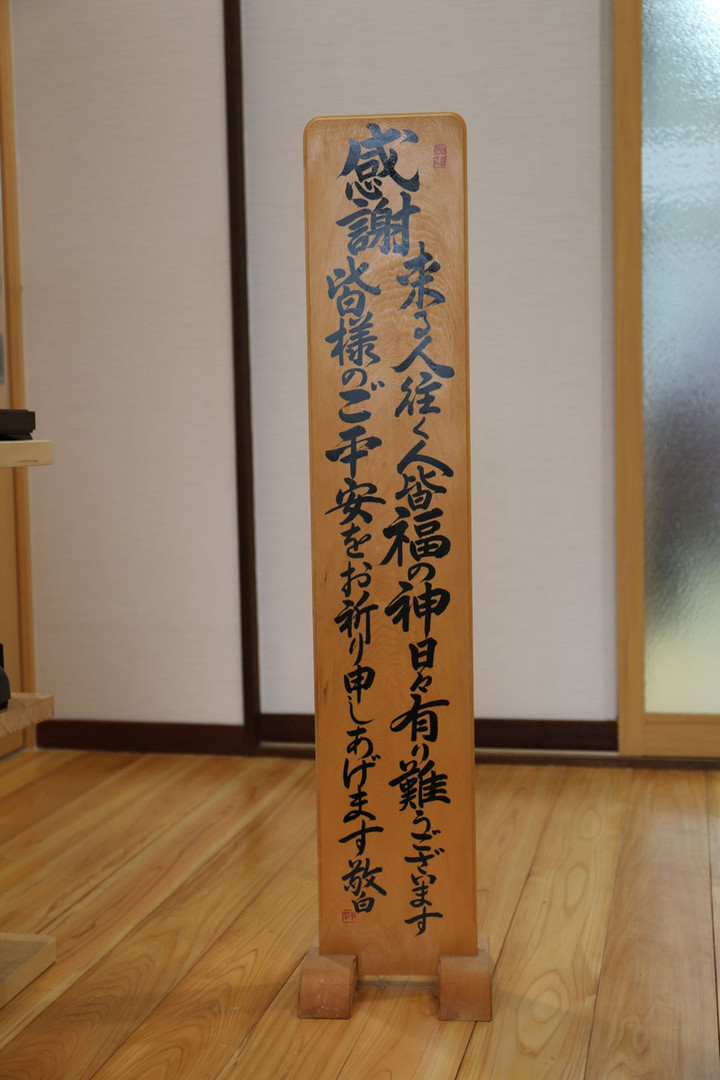 感謝
来る人往く人皆福の神日々有り難うございます
皆様のご平安をお祈り申しあげます敬白